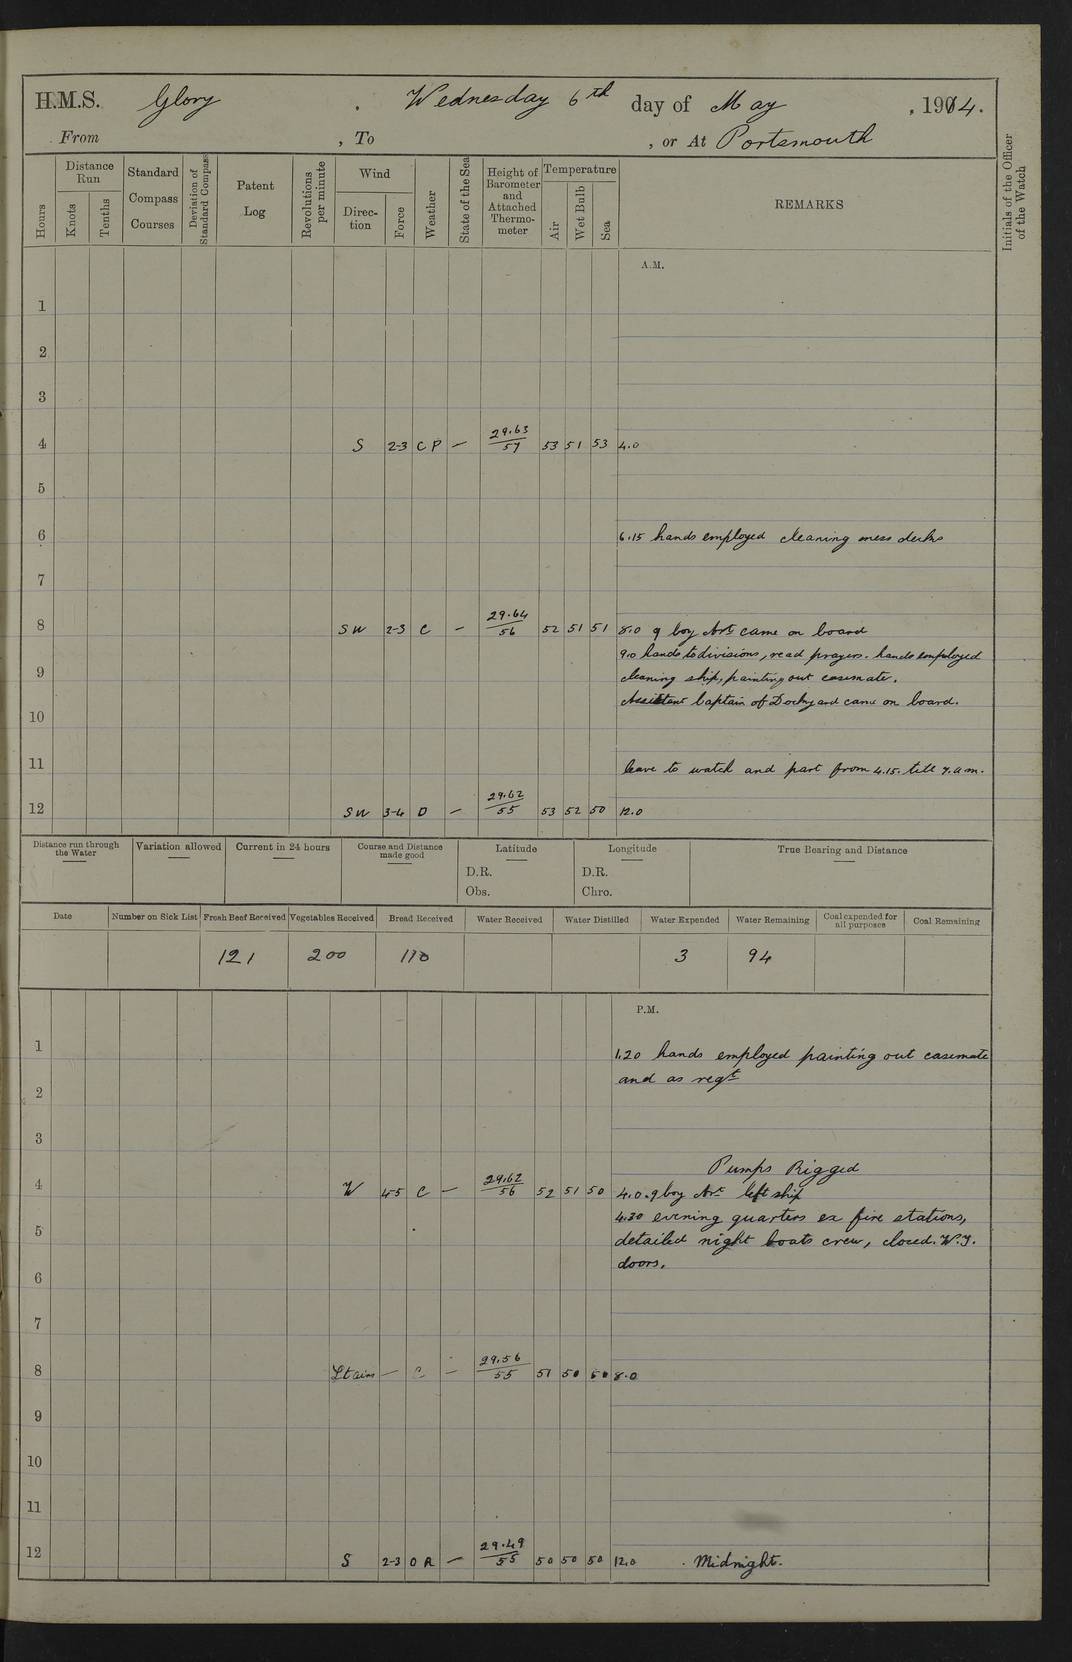 H.M.S. Glory , Wednesday 6th day of May , 1914.
From , To , or At Portsmouth
Hours
Distance Run
Knots
Tenths
Standard Compass Courses
Deviation of Standard Compass
Patent Log
Revolutions per minute
Wind
Direction
Force
Weather
State of the Sea
Height of Barometer and Attached Thermometer
Temperature
Air
Wet Bulb
Sea
REMARKS
Initials of the Officer of the Watch
A.M.
1
2
3
4 S 2-3 C P — 29.63/57 53 51 53 4.0
5
6 6.15 hands employed cleaning mess decks
7
8 SW 2-3 C — 29.64/56 52 51 51 8.0 9 boy Arts came on board
9.0 hands to divisions, read prayers. hands employed
9 cleaning ship, painting out casemate.
Assistant Captain of Dockyard came on board.
10
11 leave to watch and part from 4.15. till 7. a m.
12 SW 3-4 O — 29.62/55 53 52 50 12.0
Distance run through the Water
Variation allowed
Current in 24 hours
Course and Distance made good
Latitude
D.R.
Obs.
Longitude
D.R.
Chro.
True Bearing and Distance
Date Number on Sick List Fresh Beef Received Vegetables Received Bread Received Water Received Water Distilled Water Expended Water Remaining Coal expended for all purposes Coal Remaining
121 200 110 3 94
P.M.
1 1.20 hands employed painting out casemate
and as reqt
2
3
Pumps Rigged
4 W 4-5 C — 29.62/56 52 51 50 4.0. 9 boy Art left ship
4.30 evening quarters ex fire stations,
5 detailed night boats crew, closed. W.T.
doors.
6
7
8 Lt airs — C — 29.56/55 51 50 50 8.0
9
10
11
12 S 2-3 O R — 29.49/55 50 50 50 12.0 . Midnight.